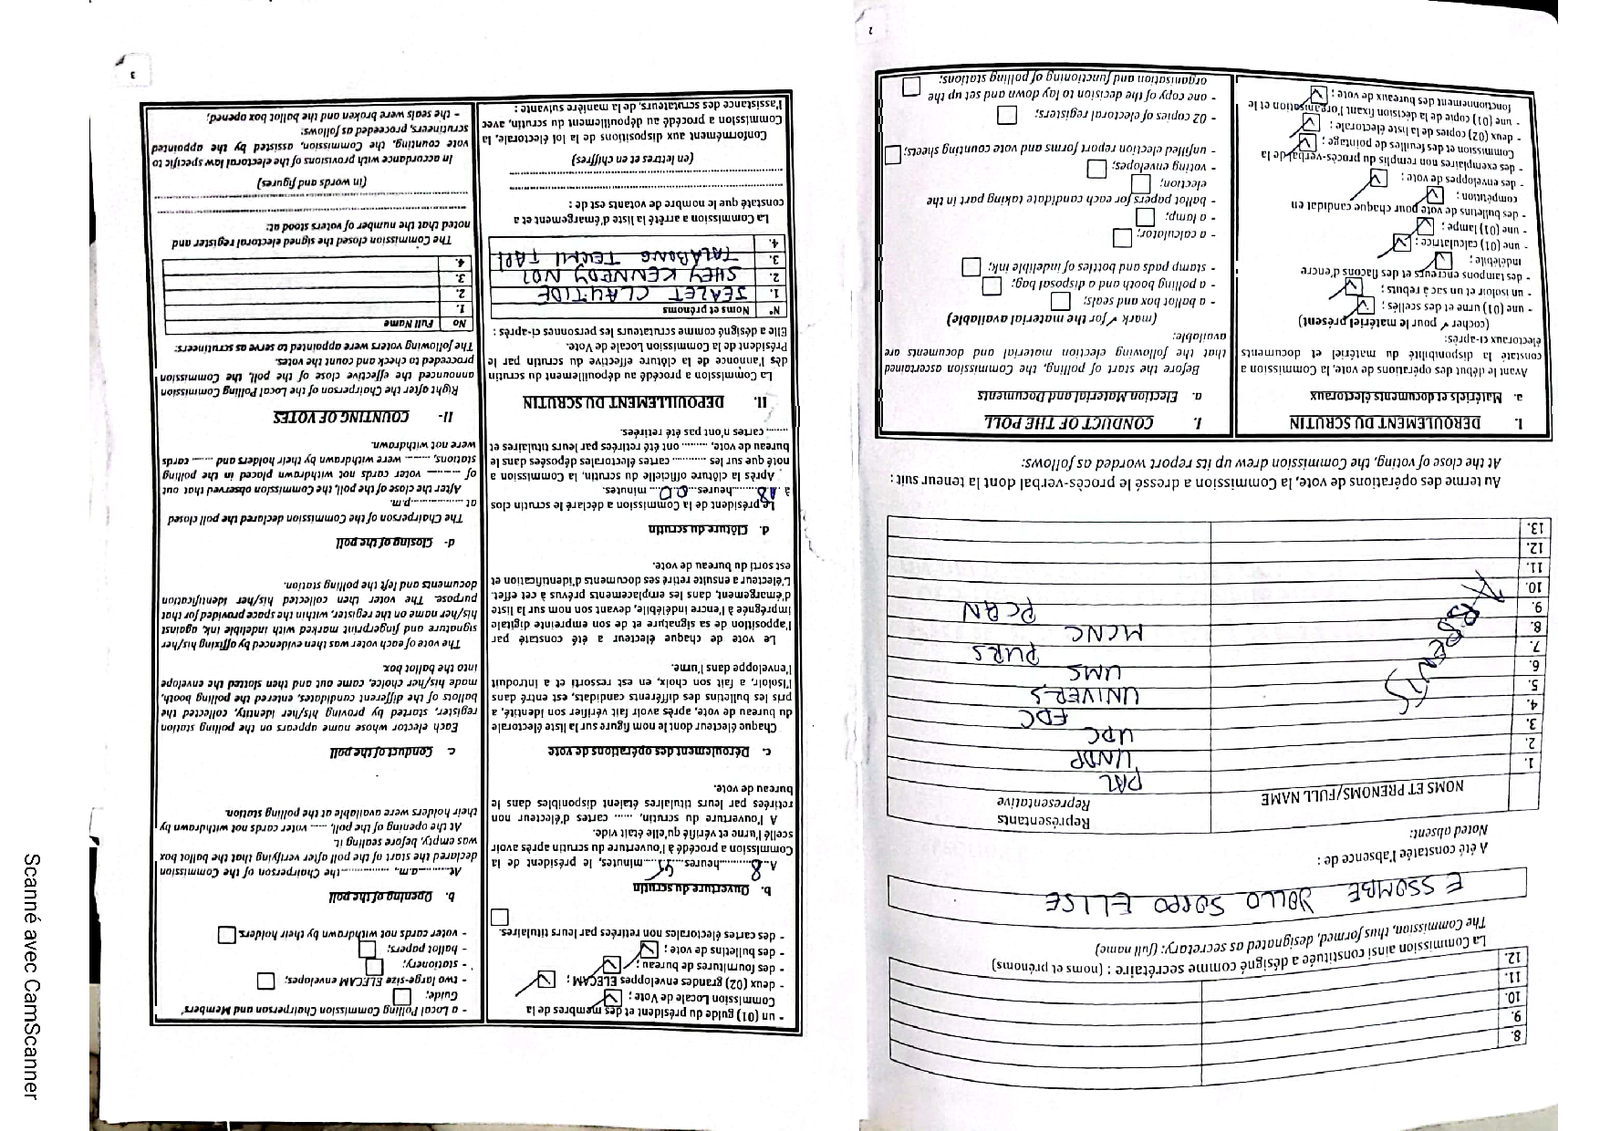 8.
9.
10.
11.
12.
La Commission ainsi constituée a désigné comme secrétaire : (noms et prénoms)
The Commission, thus formed, designated as secretary: (full name)
ESSOMBE YOLLO SOPPO ELISE
A été constatée l'absence de :
Noted absent:
NOMS ET PRENOMS/FULL NAME
Représentants
Representative
1. PAL
2. UNDP
3. UDC
4. FDC
5. UNIVERS
6. UMS
7. PURS
8. MCNC
9. PCRN
10.
11.
12.
13.
Au terme des opérations de vote, la Commission a dressé le procès-verbal dont la teneur suit :
At the close of voting, the Commission drew up its report worded as follows:
I. DEROULEMENT DU SCRUTIN
a. Matériels et documents électoraux
Avant le début des opérations de vote, la Commission a
constaté la disponibilité du matériel et documents
électoraux ci-après:
(cocher ✓ pour le matériel présent)
- une (01) urne et des scellés :
- un isoloir et un sac à rebuts :
- des tampons encreurs et des flacons d'encre
indélébile :
- une (01) calculatrice :
- une (01) lampe :
- des bulletins de vote pour chaque candidat en
compétition :
- des enveloppes de vote :
- des exemplaires non remplis du procès-verbal de la
Commission et des feuilles de pointage :
- deux (02) copies de la liste électorale :
- une (01) copie de la décision fixant l'organisation et le
fonctionnement des bureaux de vote :
I. CONDUCT OF THE POLL
a. Election Material and Documents
Before the start of polling, the Commission ascertained
that the following election material and documents are
available:
(mark ✓ for the material available)
- a ballot box and seals;
- a polling booth and a disposal bag;
- stamp pads and bottles of indelible ink;
- a calculator;
- a lamp;
- ballot papers for each candidate taking part in the
election;
- voting envelopes;
- unfilled election report forms and vote counting sheets;
- 02 copies of electoral registers;
- one copy of the decision to lay down and set up the
organisation and functioning of polling stations;
2
- un (01) guide du président et des membres de la
Commission Locale de Vote :
- deux (02) grandes enveloppes ELECAM :
- des fournitures de bureau :
- des bulletins de vote :
- des cartes électorales non retirées par leurs titulaires.
b. Ouverture du scrutin
A 8 heures 55 minutes, le président de la
Commission a procédé à l'ouverture du scrutin après avoir
scellé l'urne et vérifié qu'elle était vide.
A l'ouverture du scrutin, ...... cartes d'électeur non
retirées par leurs titulaires étaient disponibles dans le
bureau de vote.
c. Déroulement des opérations de vote
Chaque électeur dont le nom figure sur la liste électorale
du bureau de vote, après avoir fait vérifier son identité, a
pris les bulletins des différents candidats, est entré dans
l'isoloir, a fait son choix, en est ressorti et a introduit
l'enveloppe dans l'urne.
Le vote de chaque électeur a été constaté par
l'apposition de sa signature et de son empreinte digitale
imprégnée à l'encre indélébile, devant son nom sur la liste
d'émargement, dans les emplacements prévus à cet effet.
L'électeur a ensuite retiré ses documents d'identification et
est sorti du bureau de vote.
d. Clôture du scrutin
Le président de la Commission a déclaré le scrutin clos
à 18 heures 00 minutes.
Après la clôture officielle du scrutin, la Commission a
noté que sur les ......... cartes électorales déposées dans le
bureau de vote, ....... ont été retirées par leurs titulaires et
...... cartes n'ont pas été retirées.
II. DEPOUILLEMENT DU SCRUTIN
La Commission a procédé au dépouillement du scrutin
dès l'annonce de la clôture effective du scrutin par le
Président de la Commission Locale de Vote.
Elle a désigné comme scrutateurs les personnes ci-après :
N° Noms et prénoms
1. SEALET CLAUTIDE
2. SHEY KENNEDY NOI
3. TALABONG
4.
La Commission a arrêté la liste d'émargement et a
constaté que le nombre de votants est de :
(en lettres et en chiffres)
Conformément aux dispositions de la loi électorale, la
Commission a procédé au dépouillement du scrutin, avec
l'assistance des scrutateurs, de la manière suivante :
- a Local Polling Commission Chairperson and Members'
Guide;
- two large-size ELECAM envelopes;
- stationery;
- ballot papers;
- voter cards not withdrawn by their holders.
b. Opening of the poll
At.........a.m., ............the Chairperson of the Commission
declared the start of the poll after verifying that the ballot box
was empty, before sealing it.
At the opening of the poll, ...... voter cards not withdrawn by
their holders were available at the polling station.
c. Conduct of the poll
Each elector whose name appears on the polling station
register, started by proving his/her identity, collected the
ballots of the different candidates, entered the polling booth,
made his/her choice, came out and then slotted the envelope
into the ballot box.
The vote of each voter was then evidenced by affixing his/her
signature and fingerprint marked with indelible ink, against
his/her name on the register, within the space provided for that
purpose. The voter then collected his/her identification
documents and left the polling station.
d- Closing of the poll
The Chairperson of the Commission declared the poll closed
at ................p.m.
After the close of the poll, the Commission observed that out
of ......... voter cards not withdrawn placed in the polling
stations, ....... were withdrawn by their holders and ...... cards
were not withdrawn.
II- COUNTING OF VOTES
Right after the Chairperson of the Local Polling Commission
announced the effective close of the poll, the Commission
proceeded to check and count the votes.
The following voters were appointed to serve as scrutineers:
No Full Name
1.
2.
3.
4.
The Commission closed the signed electoral register and
noted that the number of voters stood at:
(in words and figures)
In accordance with provisions of the electoral law specific to
vote counting, the Commission, assisted by the appointed
scrutineers, proceeded as follows:
- the seals were broken and the ballot box opened;
3
Scanné avec CamScanner